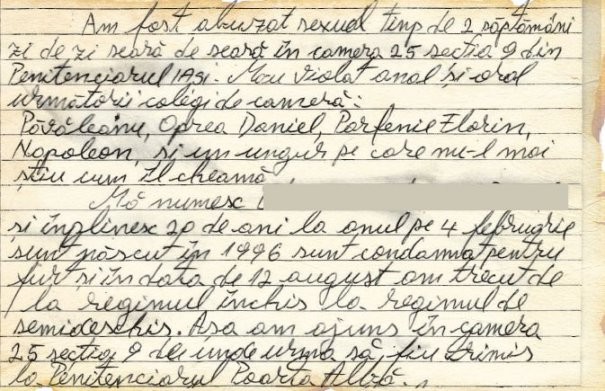 Am fost abuzat sexual timp de 2 săptămâni
zi de zi seară de seară în camera 25 secția 9 din
Penitenciarul IAȘI. M-au violat anal și oral
următorii colegi de cameră:
Păvăleanu, Oprea Daniel, Parfenie Florin,
Napoleon, și un ungur pe care nu-l mai
știu cum îl cheamă.
Mă numesc
și înplinesc 20 de ani la anul pe 4 februarie
sunt născut în 1996 sunt condamnat pentru
furt și în data de 12 august am trecut de
la regimul închis la regimul de
semideschis. Așa am ajuns în camera
25 secția 9 de unde urma să fiu trimis
la Penitenciarul Poarta Albă.